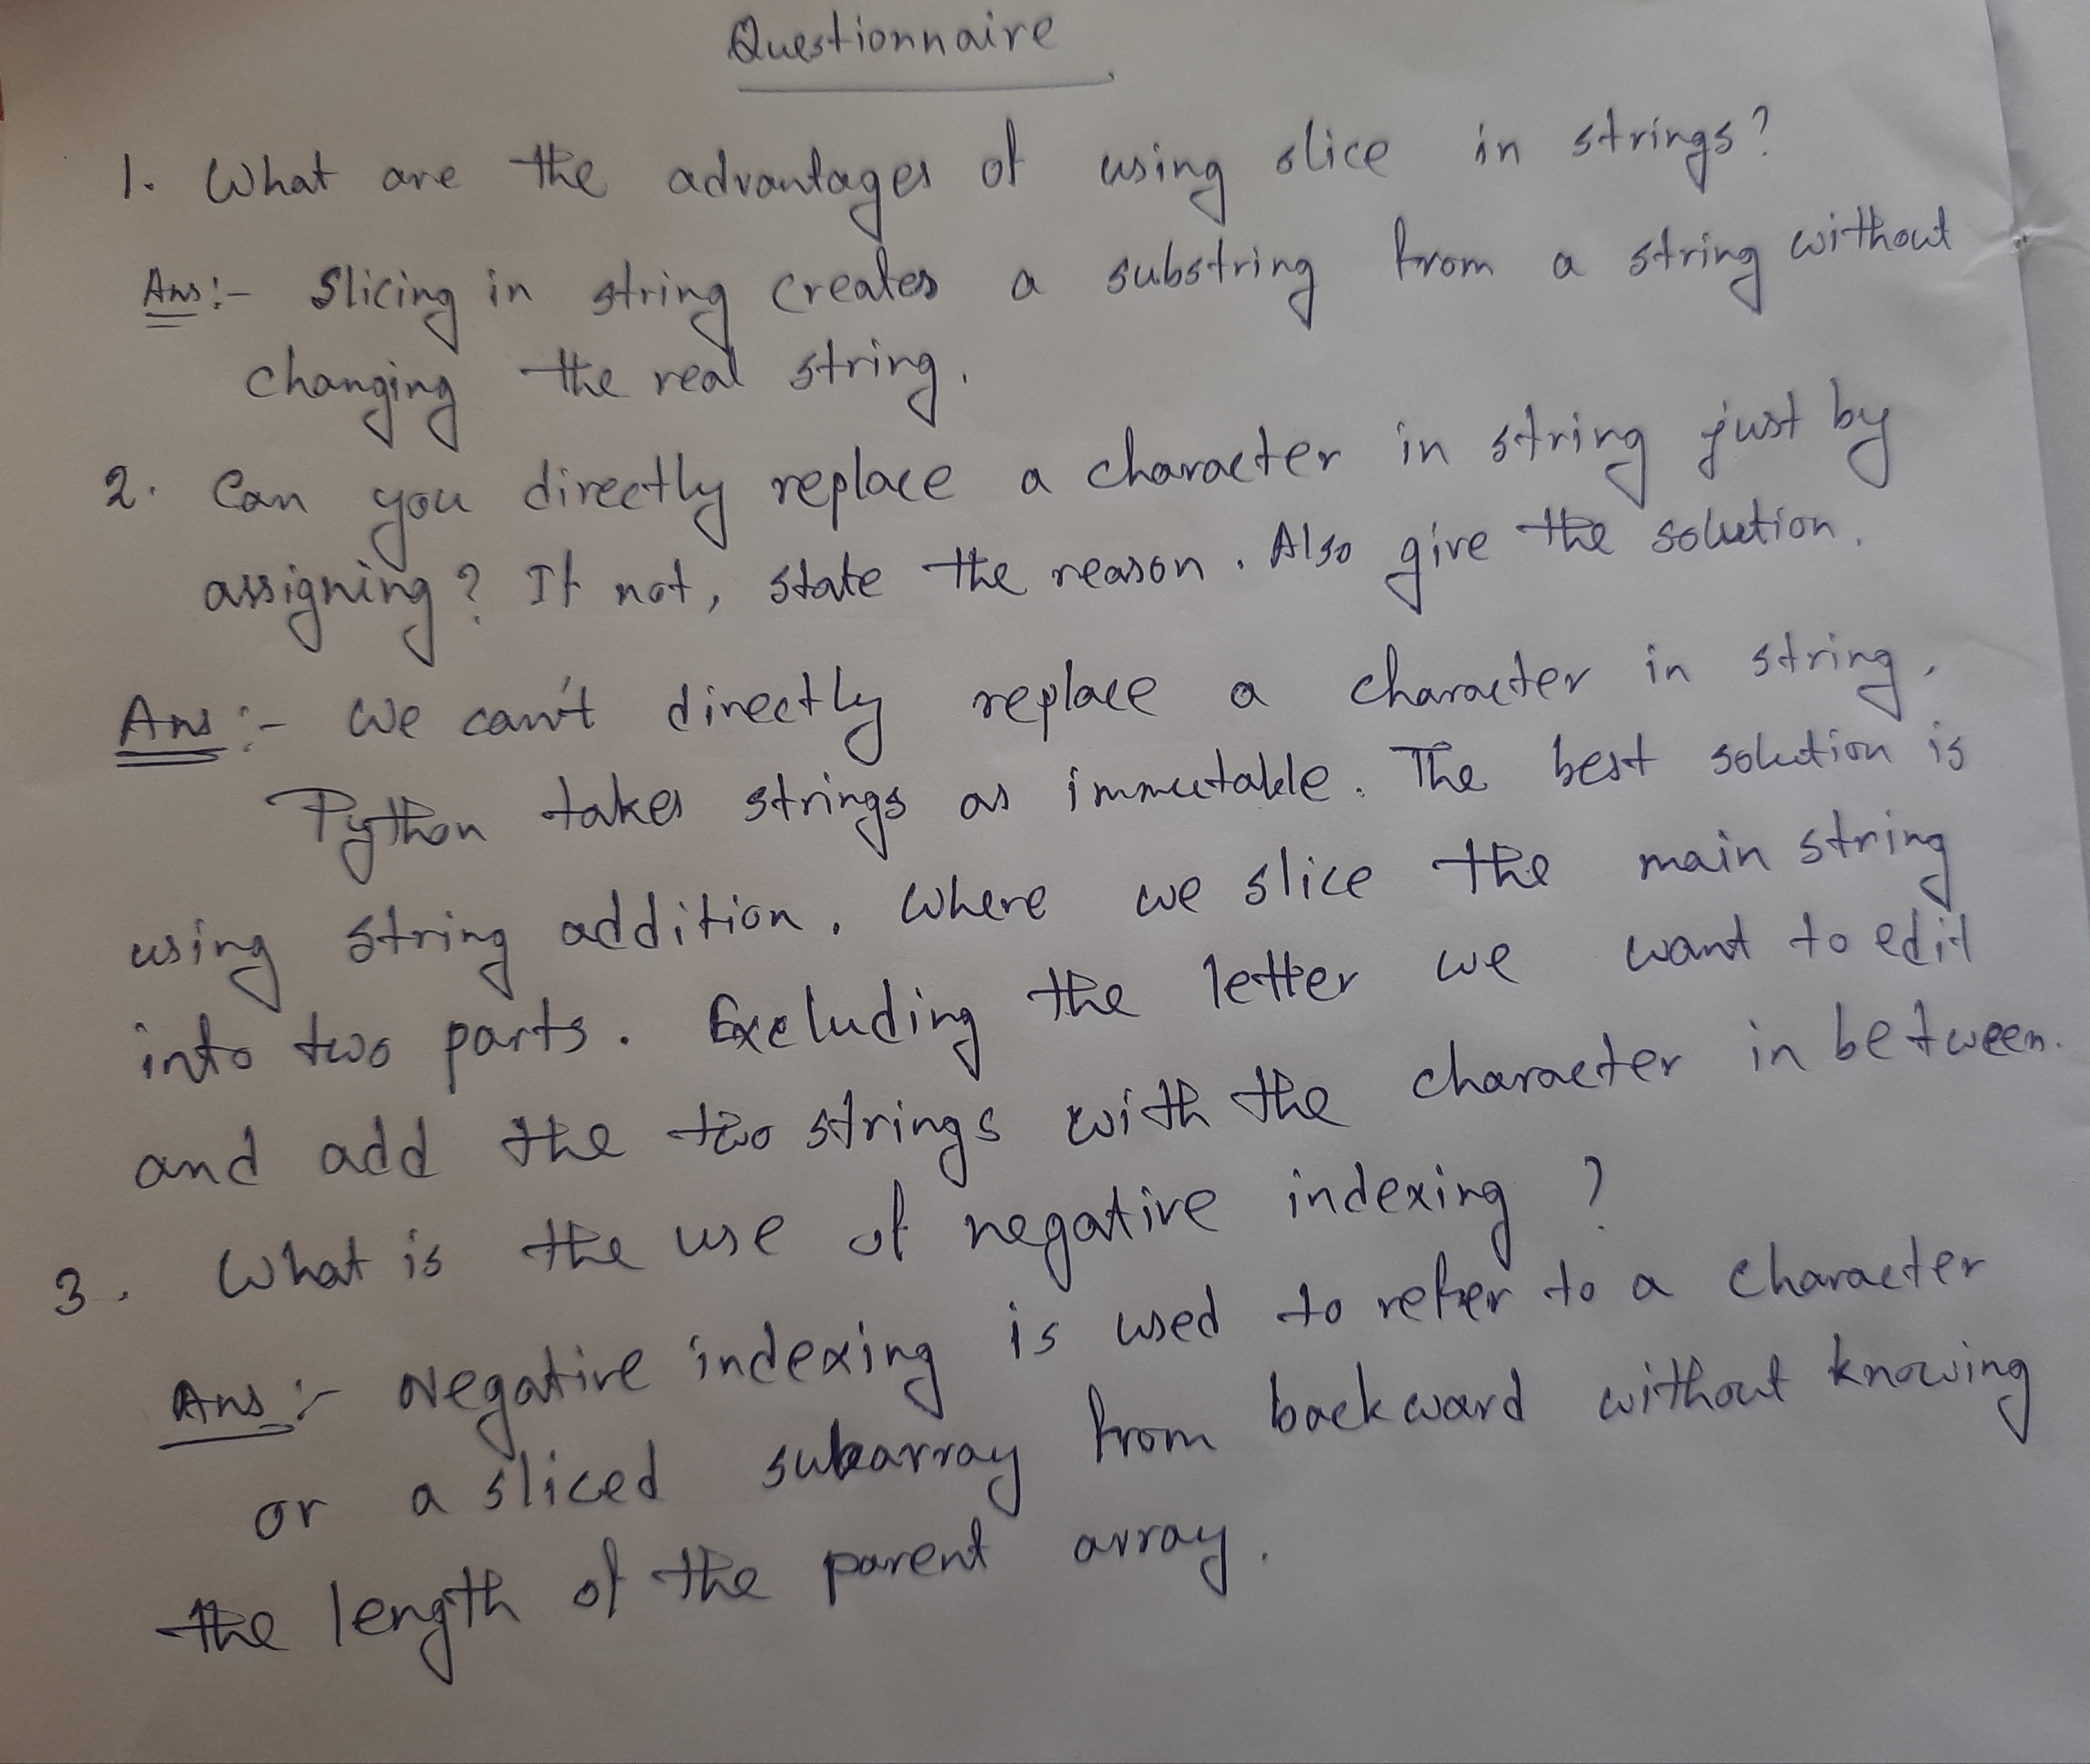 Questionnaire
1. What are the advantages of using slice in strings?
Ans:- Slicing in string creates a substring from a string without
changing the real string.
2. Can you directly replace a character in string just by
assigning? If not, state the reason. Also give the solution.
Ans:- We can't directly replace a character in string.
Python takes strings as immutable. The best solution is
using string addition. Where we slice the main string
into two parts. Excluding the letter we want to edit
and add the two strings with the character in between.
3. What is the use of negative indexing?
Ans:- Negative indexing is used to refer to a character
or a sliced subarray from backward without knowing
the length of the parent array.